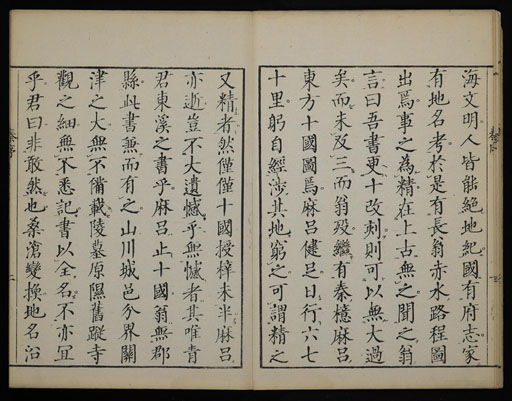 海文明人皆能絶地紀國有府志家
有地名考於是有長翁赤水路程圖
出焉事之為精在上古無之聞之翁
言曰吾書更十改刺則可以無大過
矣而未及三而翁歿繼有秦檍麻呂
東方十國圖焉麻呂健足日行六七
十里躬自經涉其地窮之可謂精之
又精者然僅僅十國授梓未半麻呂
亦逝豈不大遺憾乎無憾者其唯青
君東溪之書乎麻呂止十國翁無郡
縣此書兼而有之山川城邑分界關
津之大無不備載陵墓原隰舊蹤寺
觀之細無不悉記書以全名不亦宜
乎君曰非敢然也桑滄變換地名沿